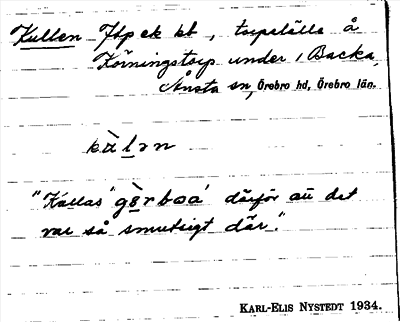 Kullen Jtp ek bl, torpställe å
Körningstorp under, Backa,
Ånsta sn, Örebro hd, Örebro län.
kàlən
"Kallas" gèrboa' därför att det
var så smutsigt där."
KARL-ELIS NYSTEDT 1934.